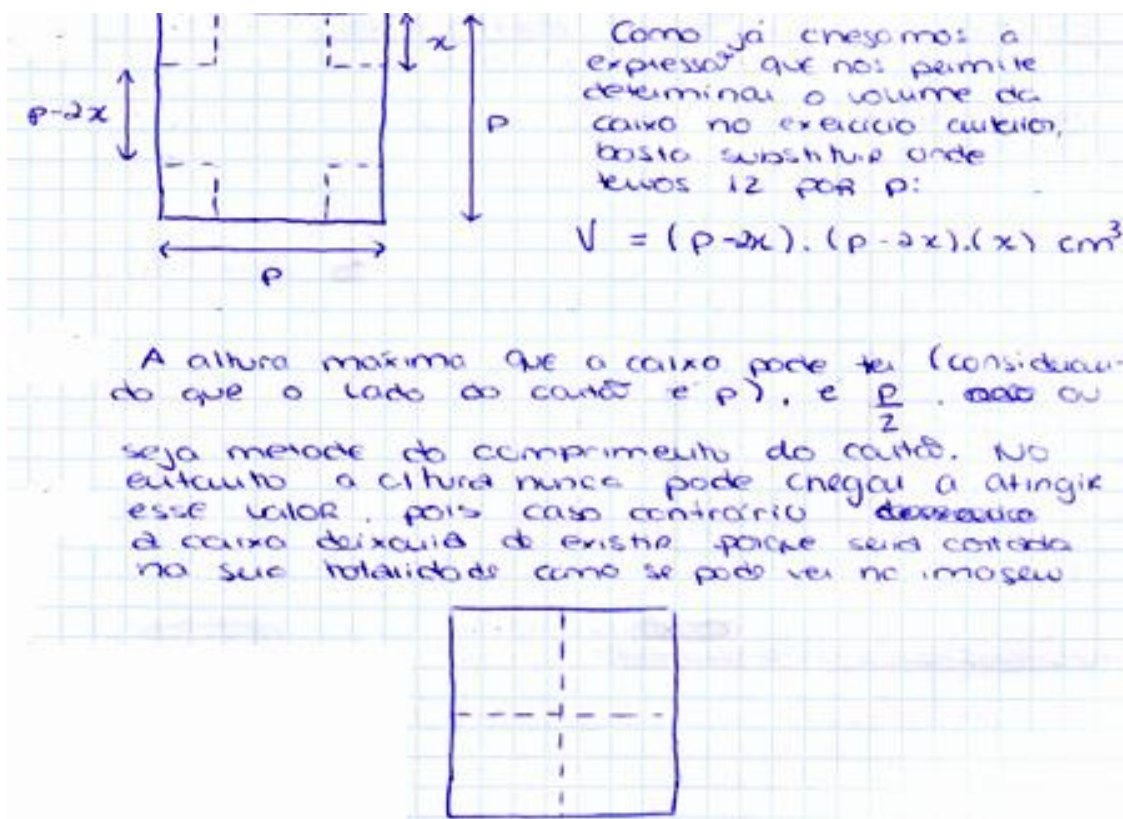 x
p-2x
p
p
Como já chegamos a
expressão que nos permite
determinar o volume da
caixa no exercício anterior,
basta substituir onde
temos 12 por p:
V = (p-2x).(p-2x).(x) cm³
A altura máxima que a caixa pode ter (consideran-
do que o lado do cartão é p), é p/2, ou
seja metade do comprimento do cartão. No
entanto a altura nunca pode chegar a atingir
esse valor, pois caso contrário
a caixa deixaria de existir porque seria cortada
na sua totalidade como se pode ver na imagem